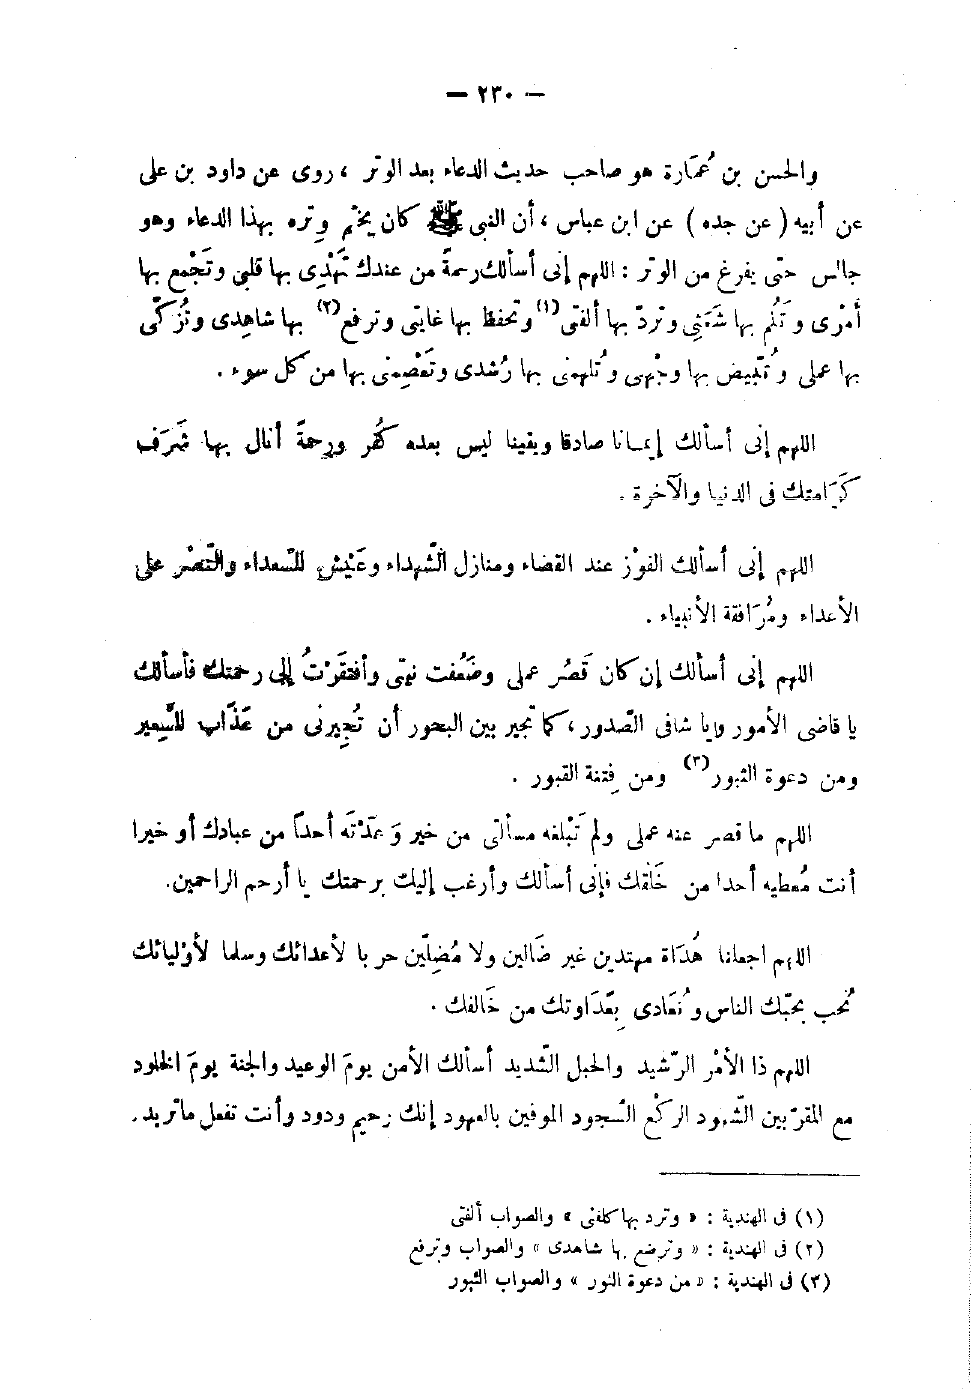 — ٢٣٠ —
والحسن بن عُمَارة هو صاحب حديث الدعاء بعد الوتر ، روى عن داود بن على
عن أبيه ( عن جده ) عن ابن عباس ، أن النبى ﷺ كان يختم وِتره بهذا الدعاء وهو
جالس حتى يفرغ من الوتر : اللهم إنى أسألك رحمةً من عندك تَهْدِى بها قلبى وتَجْمع بها
أمْرى وتَلُم بها شَعَثِى وتردّ بها ألفتى(١) وتحفظ بها غايتى وترفع(٢) بها شاهدى وتُزكّى
بها عملى وتُبيّض بها وجْهى وتُلهمنى بها رُشدى وتَعْصِمنى بها من كل سوء .
اللهم إنى أسألك إيمانا صادقا ويقينا ليس بعده كُفر ورحمةً أنال بها شَرَف
كَرَامتك فى الدنيا والآخرة .
اللهم إنى أسألك الفوْز عند القضاء ومنازل الشّهداء وعَيْش السّعداء والنّصْر على
الأعداء ومُرَافقة الأنبياء .
اللهم إنى أسألك إن كان قَصُر عملى وضَعُفت نيتى وأفتقَرْتُ إلى رحمتك فأسألك
يا قاضى الأمور ويا شافى الصّدور ، كما تجير بين البحور أن تُجِيرنى من عَذَاب السّعير
ومن دعوة الثبور(٣) ومن فِتنة القبور .
اللهم ما قصر عنه عملى ولم تَبْلغه مسألتى من خير وَعَدْتَه أحداً من عبادك أو خيرا
أنت مُعطيه أحدا من خَلْقك فإنى أسألك وأرغب إليك برحمتك يا أرحم الراحمين.
اللهم اجعلنا هُدَاة مهتدين غير ضَالين ولا مُضِلّين حربا لأعدائك وسلما لأوْليائك
نُحب بحبّك الناس ونُعَادى بِعَدَاوتك من خَالفك .
اللهم ذا الأمْر الرّشيد والحبل الشّديد أسألك الأمن يومَ الوعيد والجنة يومَ الخلود
مع المقرّبين الشّهود الركّع السّجود الموفين بالعهود إنك رحيم ودود وأنت تفعل ماتريد.
(١) فى الهندية : « وترد بها كلفنى » والصواب ألفتى
(٢) فى الهندية : « وترضع بها شاهدى » والصواب وترفع
(٣) فى الهندية : « من دعوة النور » والصواب الثبور